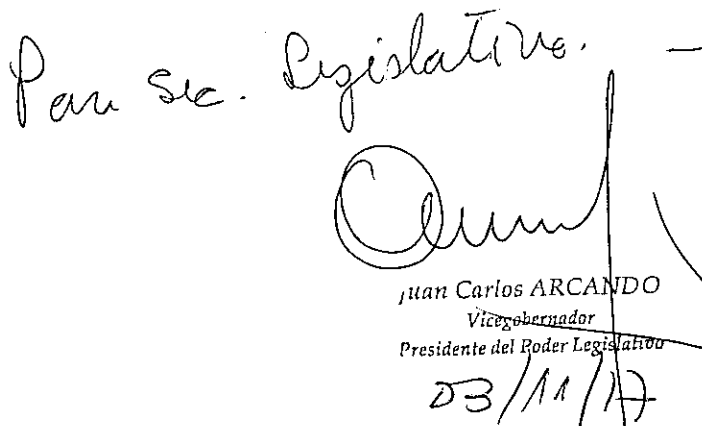 Pase Sec. Legislativa. —
Juan Carlos ARCANDO
Vicegobernador
Presidente del Poder Legislativo
03/11/17